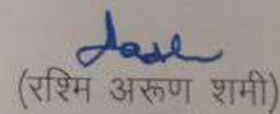 (रश्मि अरूण शमी)